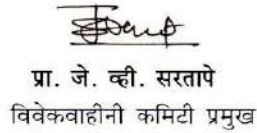 प्रा. जे. व्ही. सरतापे
विवेकवाहीनी कमिटी प्रमुख